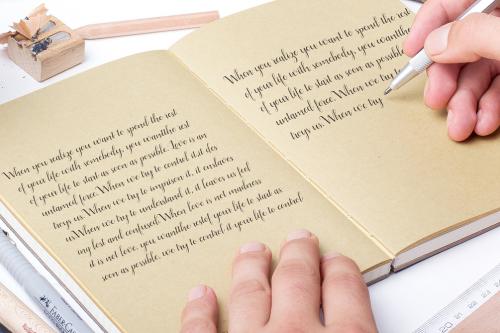 When you realize you want to spend the rest
of your life with somebody, you wantthe rest
of your life to start as soon as possible. Love is an
untamed force. When we try to control it,it des
troys us. When we try to imprison it, it enslaves
us.When we try to understand it, it leaves us feel
ing lost and confused.When love is not madness
it is not love. you wantthe restof your life to start as
soon as possible. we try to control it your life to control
When you realize you want to spend the rest
of your life with somebody, you wantthe
of your life to start as soon as possible
untamed force. When we try to
troys us. When we try
FABER-CA